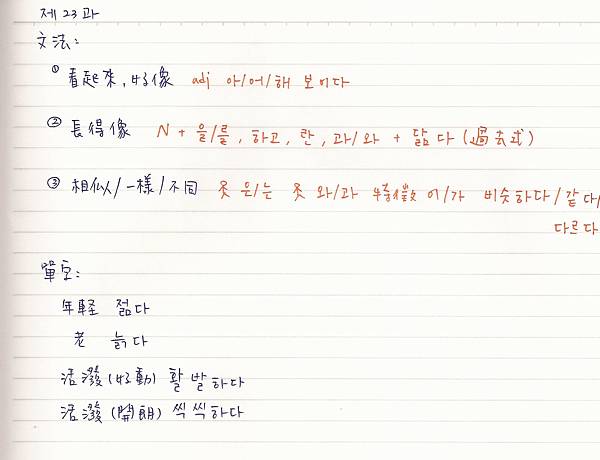 제 23 과
文法:
① 看起來,好像 adj 아/어/해 보이다
② 長得像 N + 을/를, 하고, 란, 과/와 + 닮다 (過去式)
③ 相似/一樣/不同 은/는 와/과 特徵 이/가 비슷하다/같다/
다르다
單字:
年軽 젊다
老 늙다
活潑(好動) 활발하다
活潑(開朗) 씩씩하다